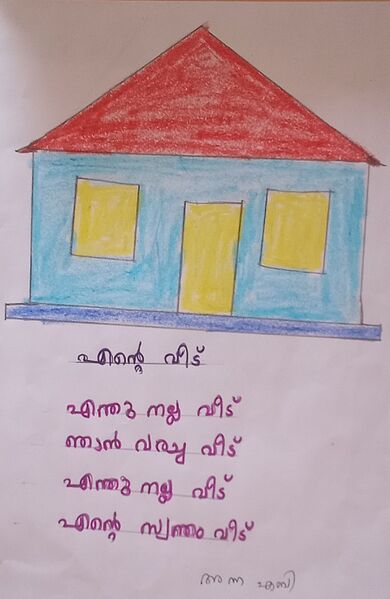 എന്റെ വീട്
എന്തു നല്ല വീട്
ഞാൻ വരച്ച വീട്
എന്തു നല്ല വീട്
എന്റെ സ്വന്തം വീട്
അന്ന എബി